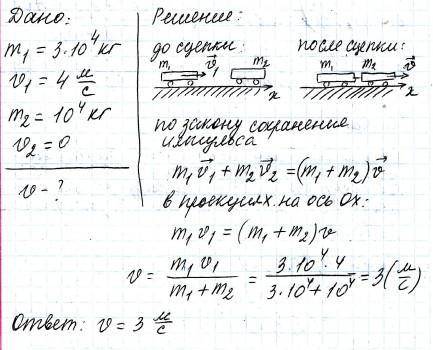 Дано:
m₁ = 3·10⁴ кг
v₁ = 4 м/с
m₂ = 10⁴ кг
v₂ = 0
v - ?
Решение:
до сцепки:
m₁ v⃗₁ m₂
x
после сцепки:
m₁ m₂ v⃗
x
по закону сохранения
импульса
m₁v⃗₁ + m₂v⃗₂ = (m₁ + m₂)v⃗
в проекциях на ось Ох:
m₁v₁ = (m₁ + m₂)v
v = m₁v₁ / m₁ + m₂ = 3·10⁴·4 / 3·10⁴ + 10⁴ = 3 (м/с)
Ответ: v = 3 м/с